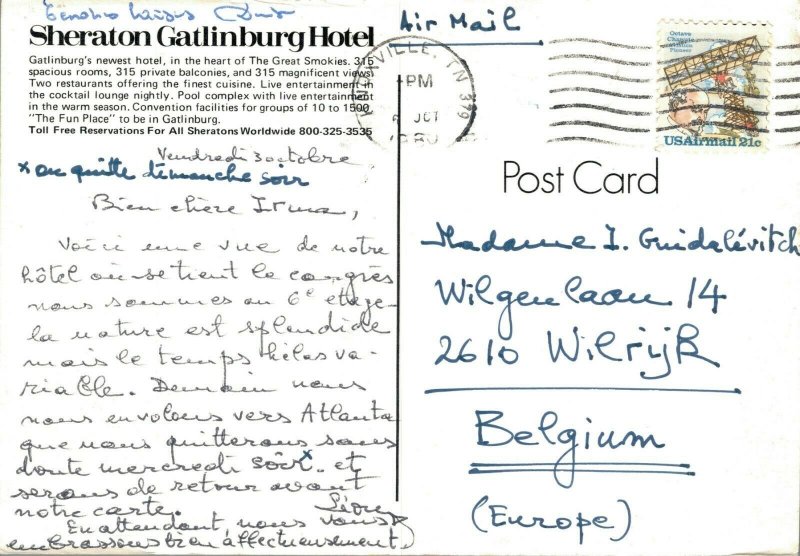 Tendres baisers
Air Mail
Sheraton Gatlinburg Hotel
Gatlinburg's newest hotel, in the heart of The Great Smokies. 315
spacious rooms, 315 private balconies, and 315 magnificent views!
Two restaurants offering the finest cuisine. Live entertainment in
the cocktail lounge nightly. Pool complex with live entertainment
in the warm season. Convention facilities for groups of 10 to 1500.
"The Fun Place" to be in Gatlinburg.
Toll Free Reservations For All Sheratons Worldwide 800-325-3535
VILLE, TN 379
PM
OCT
Octave
Chanute
Aviation
Pioneer
USAirmail 21c
Vendredi 3 octobre
x on quitte dimanche soir
Bien chère Irma,
Voici une vue de notre
hôtel où se tient le congrès
nous sommes au 6e étage
la nature est splendide
mais le temps hélas va-
riable. Demain nous
nous envolons vers Atlanta
que nous quitterons sans
doute mercredi soir x. et
serons de retour avant
notre carte.
En attendant, nous vous
embrassons bien affectueusement.
Post Card
Madame I. Guidalévitch
Wilgenlaan 14
2610 Wilrijk
Belgium
(Europe)